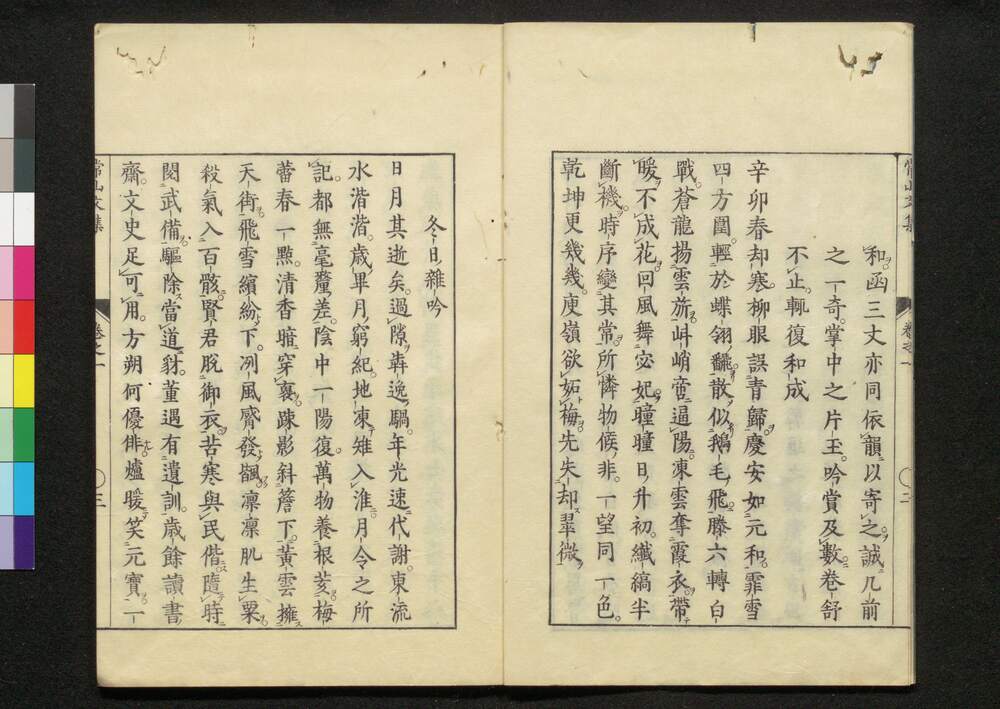 和函三丈亦同依韻以寄之誠几前
之一奇掌中之片玉吟賞及數卷舒
不止輒復和成
辛卯春却寒柳眼誤青歸慶安如元和霏雪
四方圍輕於蝶翎飜散似鵝毛飛滕六轉白
戰蒼龍揚雲旂峭窓逼陽凍雲奪霞衣帶
暖不成花回風舞宓妃曈曈日升初纖縞半
斷機時序變其常所憐物候非一望同一色
乾坤更幾幾庾嶺欲妬梅先失却翠微
常山文集
卷之一
二
冬日雜吟
日月其逝矣過隙犇逸騧年光速代謝東流
水湝湝歲畢月窮紀地凍雉入淮月令之所
記都無毫釐差陰中一陽復萬物養根荄梅
蕾春一點清香暗穿裏疎影斜簷下黃雲擁
天街飛雪繽紛下冽風觱發颻凛凛肌生粟
殺氣入百骸賢君脫御衣苦寒與民偕隨時
閱武備驅除當道豺董遇有遺訓歲餘讀書
齋文史足可用方朔何優俳爐暖笑元寶一
常山文集
卷之一
三